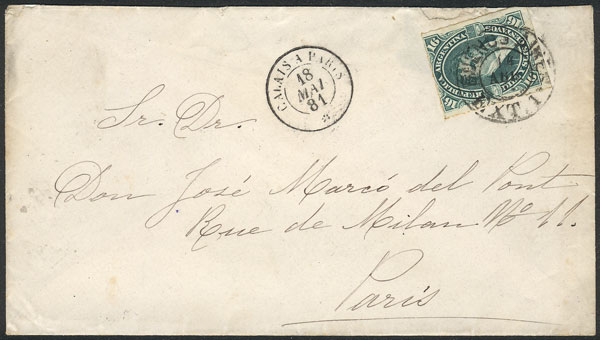 16 REPUBLICA ARGENTINA 16
16 CENTAVOS 16
CALAIS A PARIS
18
MAI
81
Sr. Dr.
Don José Marcó del Pont
Rue de Milan Nº 11.
Paris